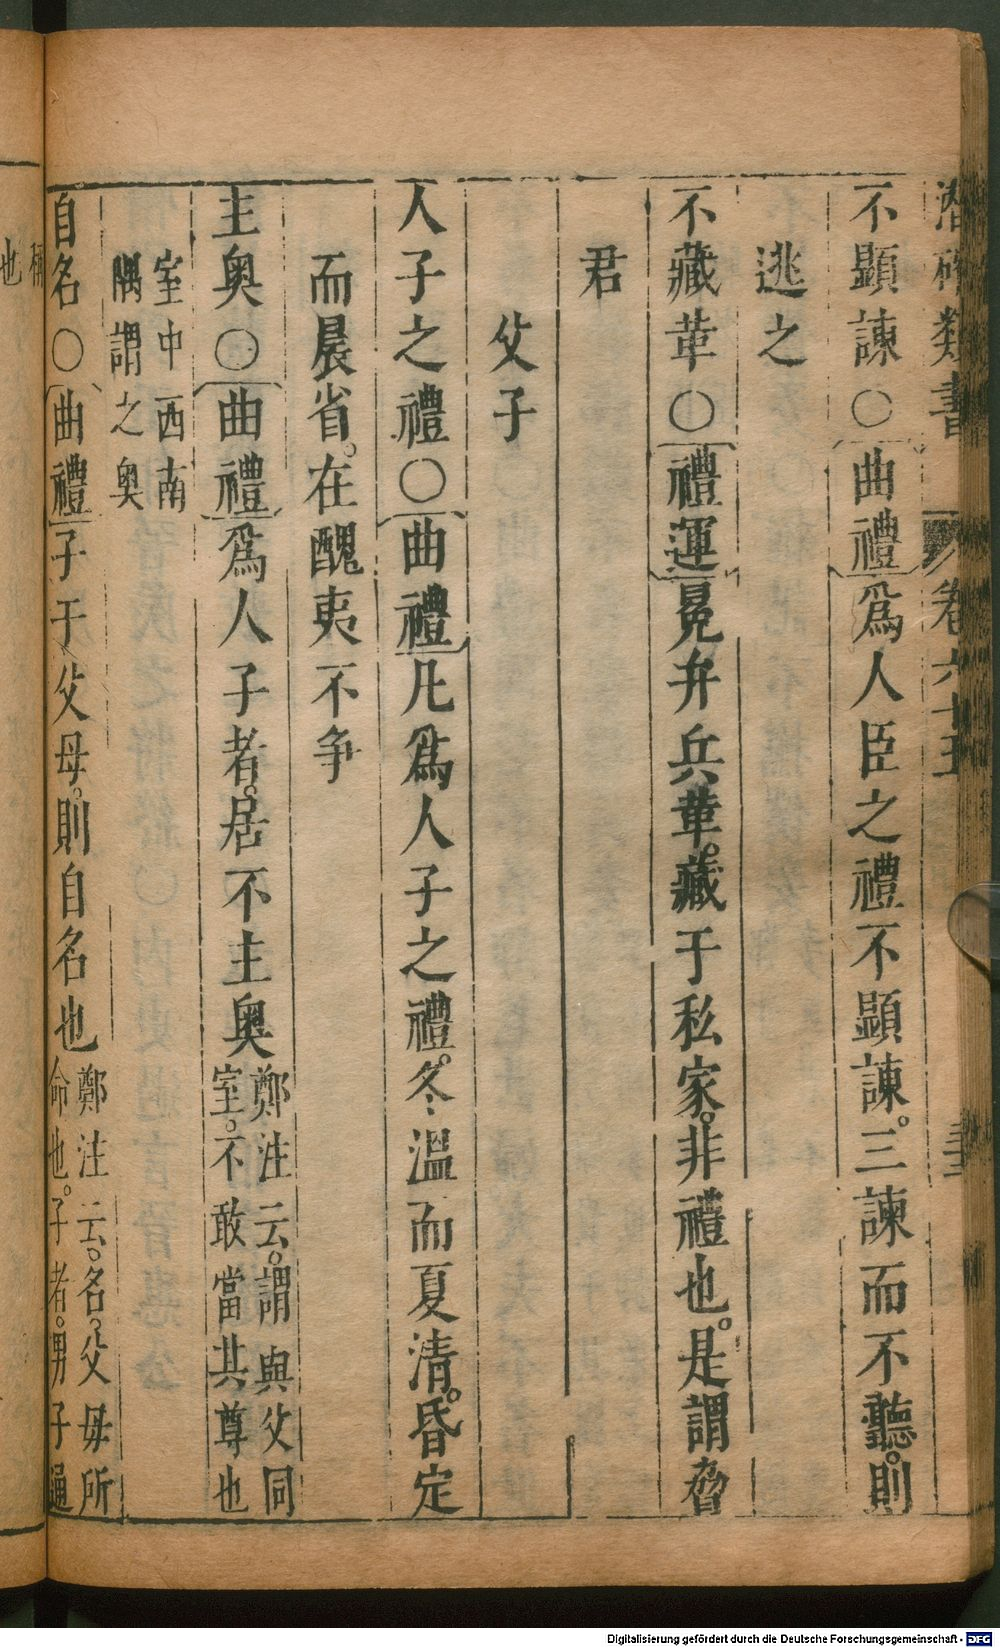 潛確類書 卷六十五 三十三
不顯諫○曲禮爲人臣之禮不顯諫。三諫而不聽。則
逃之
不藏革○禮運冕弁兵革。藏于私家。非禮也。是謂脅
君
父子
人子之禮○曲禮凡爲人子之禮。冬溫而夏清。昏定
而晨省。在醜夷不争
主奥○曲禮爲人子者。居不主奥鄭注云。謂與父同
室。不敢當其尊也
室中西南
隅謂之奥
自名○曲禮子于父母。則自名也鄭注云。名。父母所
命也。子者。男子通
稱
也
Digitalisierung gefördert durch die Deutsche Forschungsgemeinschaft - DFG